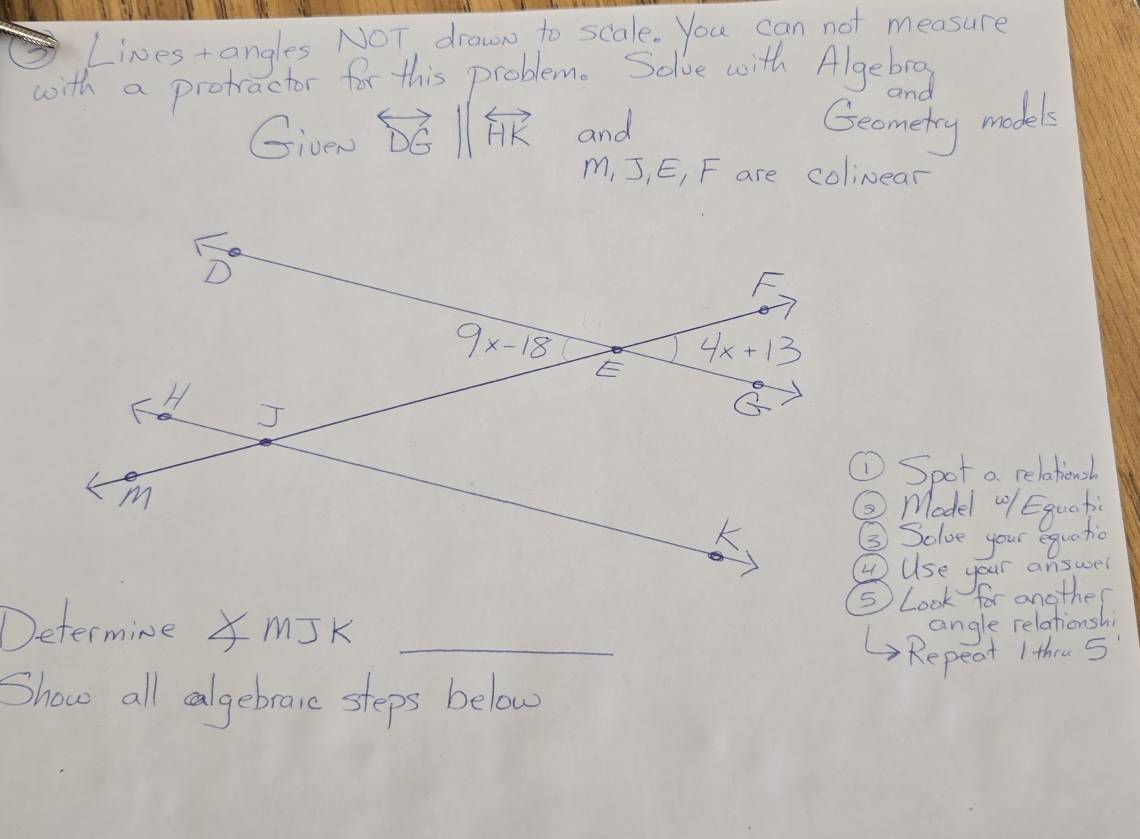 ③ Lines + angles NOT drawn to scale. You can not measure
with a protractor for this problem. Solve with Algebra
and
Geometry models
Given DG || HK and
M, J, E, F are colinear
D
F
9x-18
4x + 13
E
G
H
J
M
K
① Spot a relationsh
② Model w/ Equati
③ Solve your equatio
④ Use your answer
⑤ Look for another
angle relationshi
↳ Repeat 1 thru 5
Determine ∡ MJK
Show all algebraic steps below